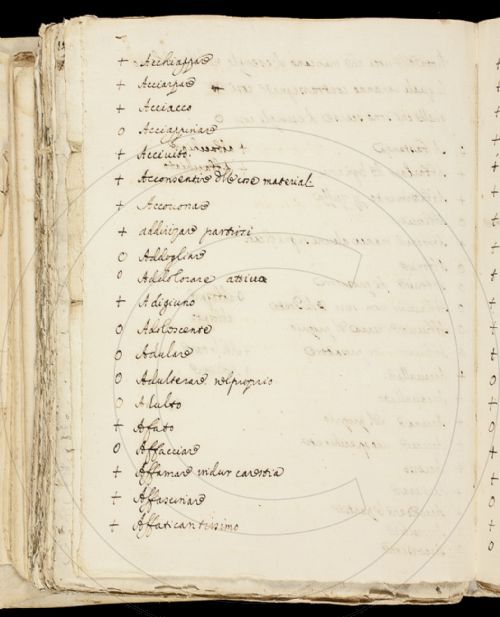 + Acchiappare
+ Acciarpare +
+ Acciacco
o Acciappinare
+ Acciuito
+ Acconsentire di cose material
+ Accoronare
+ addirizare partiti
o Addogliare
o Addolorare attivo
+ Adigiuno
o Adoloscente
o Adulare
o Adulterare nel proprio
o Adulto
+ Afato
o Affacciare
+ Affamare indur carestia
+ Affascinare
+ Affaticantissimo